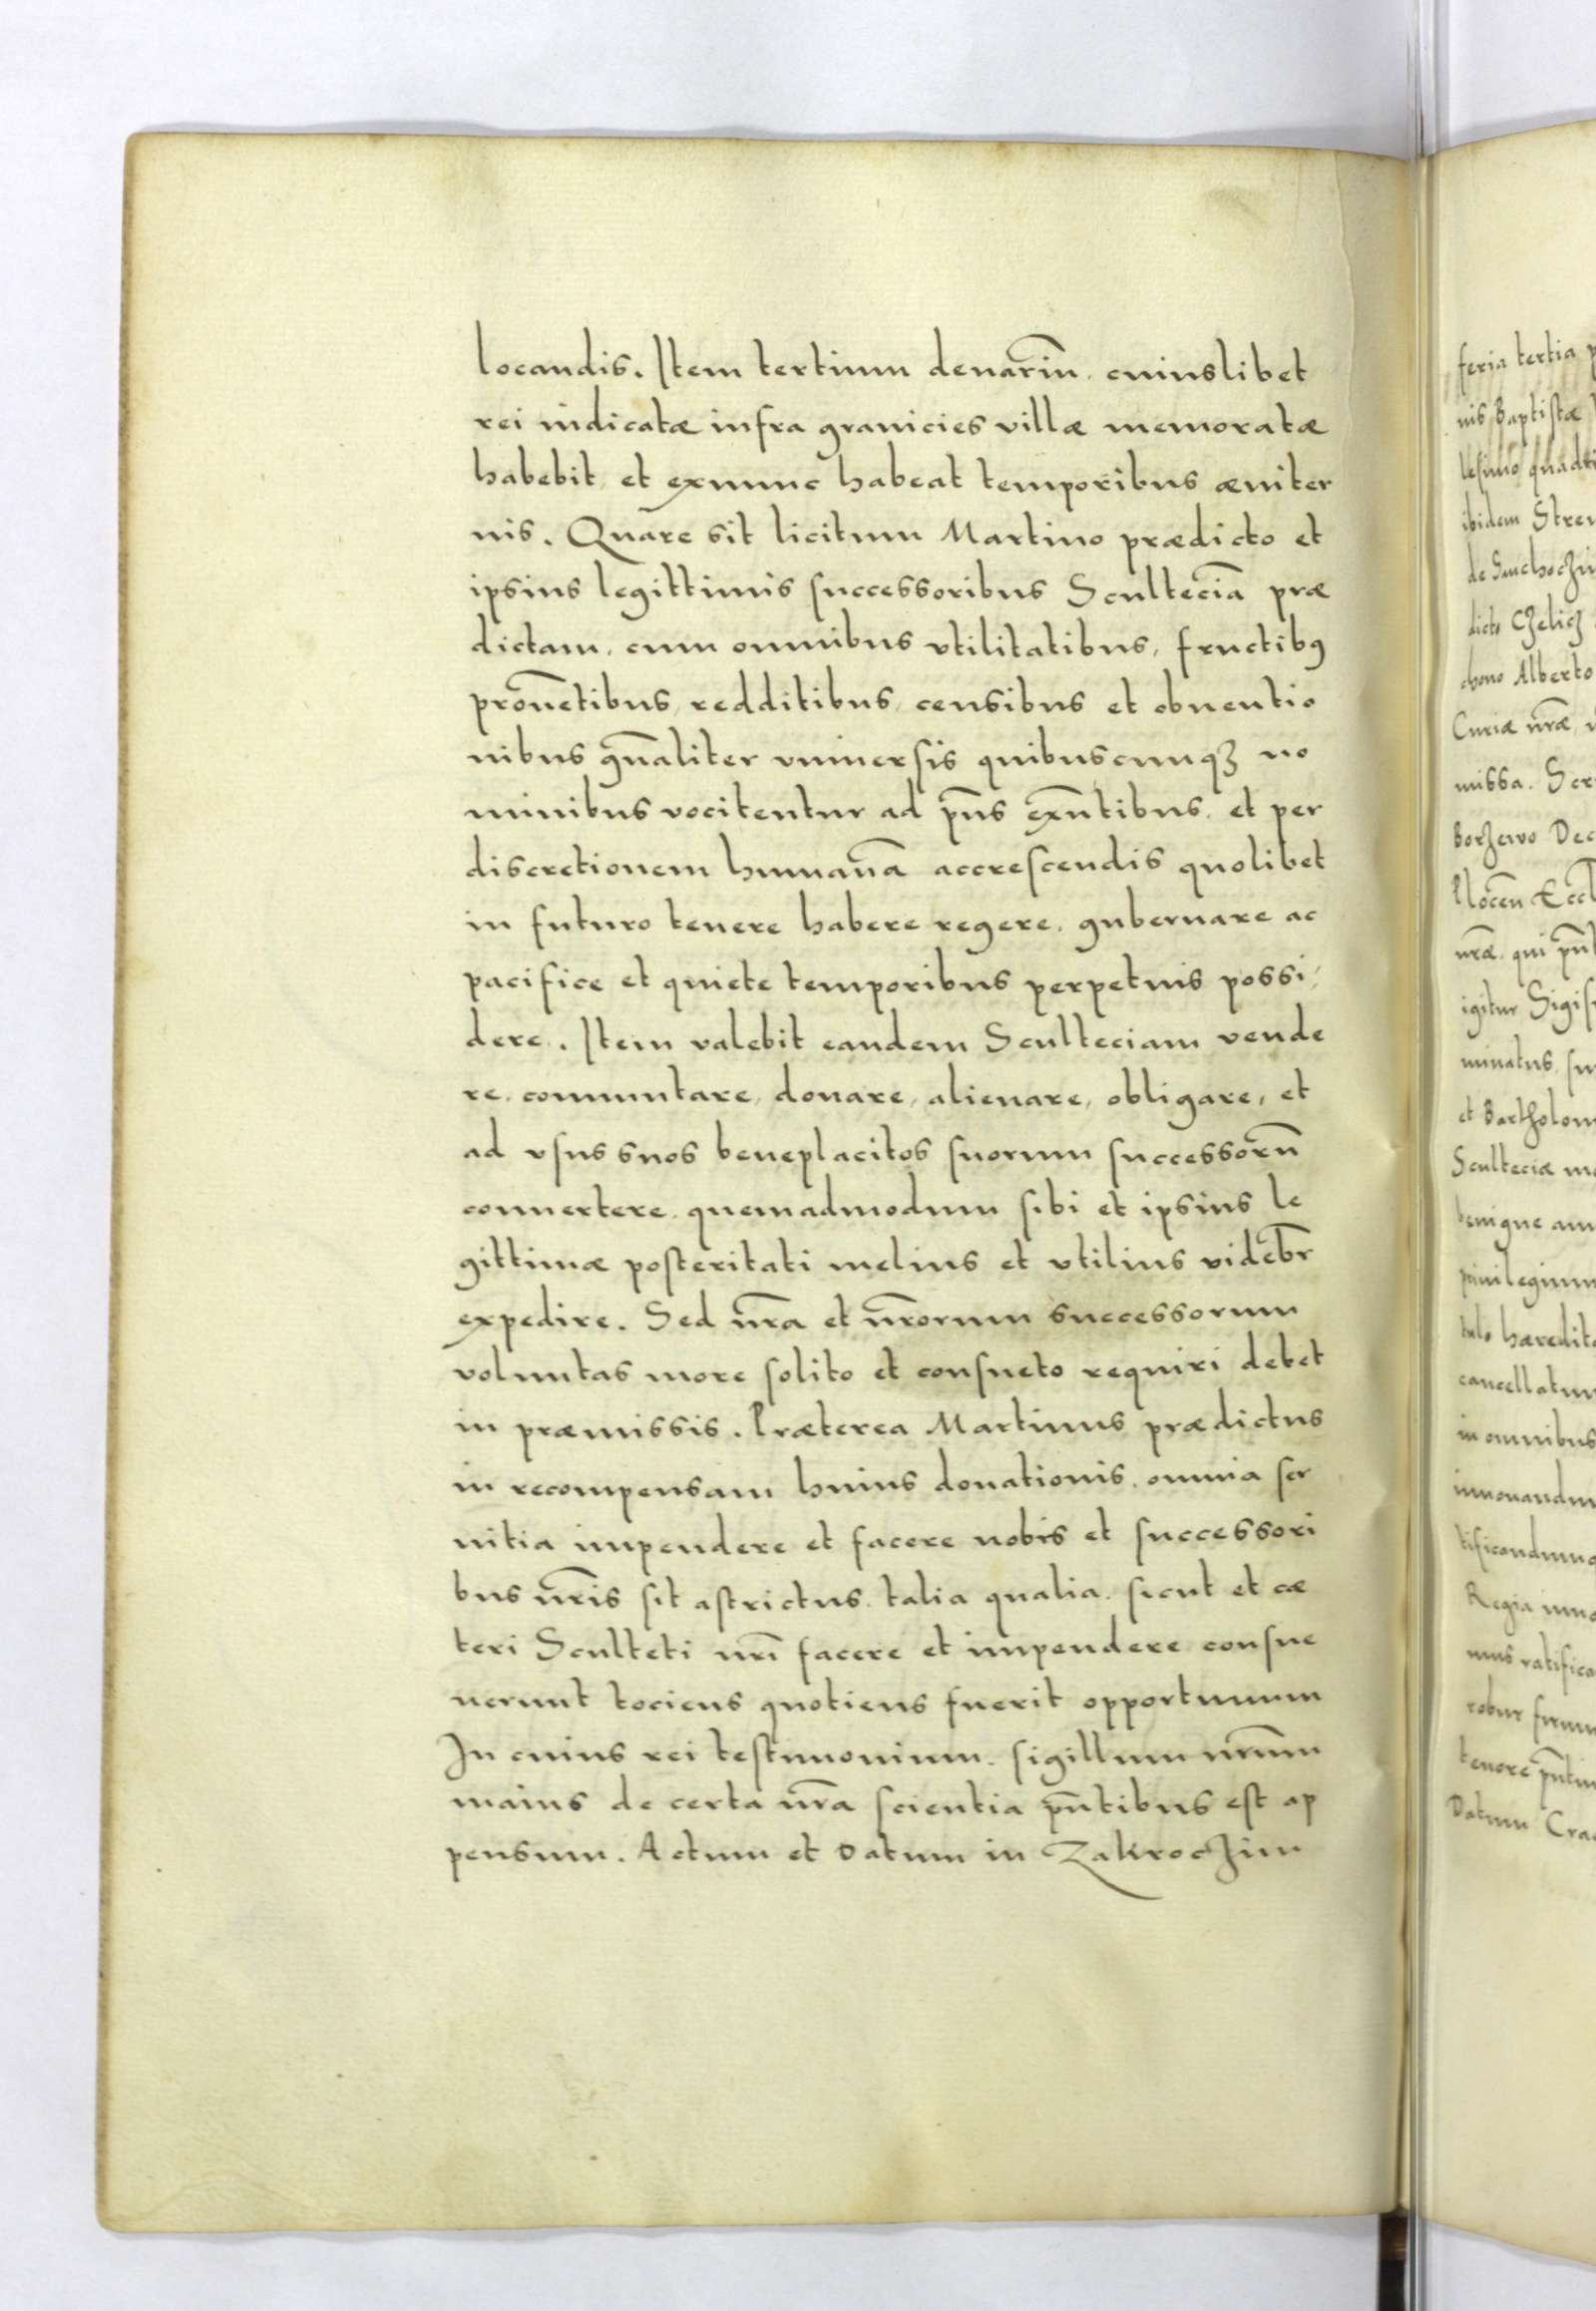 locandis. Item tertium denariũ. cuiuslibet
rei iudicatæ infra granicies villæ memoratæ
habebit, et exnunc habeat temporibus æuiter
nis. Quare sit licitum Martino prædicto et
ipsius legittimis successoribus Sculteciã præ
dictam, cum omnibus vtilitatibus, fructibꝯ
prouẽtibus, redditibus, censibus et obuentio
nibus gñaliter vniuersis quibuscumqꝫ no
minibus vocitentur ad pñs exñtibus, et per
discretionem humanã accrescendis quolibet
in futuro tenere habere regere, gubernare ac
pacifice et quiete temporibus perpetuis possi/
dere. Item valebit eandem Sculteciam vende
re, commutare, donare, alienare, obligare, et
ad vsus suos beneplacitos suorum successorũ
conuertere, quemadmodum sibi et ipsius le
gittimæ posteritati melius et vtilius videbr̃
expedire. Sed nr̃a et nr̃orum successorum
voluntas more solito et consueto requiri debet
in præmissis. Præterea Martinus prædictus
in recompensam huius donationis, omnia ser
uitia impendere et facere nobis et successori
bus nr̃is sit astrictus, talia qualia, sicut et cæ
teri Sculteti nr̃i facere et impendere consue
uerunt tociens quotiens fuerit opportunum
In cuius rei testimonium. sigillum nr̃um
maius de certa nr̃a scientia pñtibus est ap
pensum. Actum et Datum in Zakroczim
feria tertia
nis Baptistæ
lesimo
ibidem
dicto Czelicz
Alberto
Curiæ nr̃æ
missa.
Borzewo
Ploceñ
nr̃æ, qui
igitur
minatus
et
Sculteciæ
benigne
priuilegium
tulo
cancellatum
in omnibus
innouandum
Regia
mus
robur
tenore
Datum